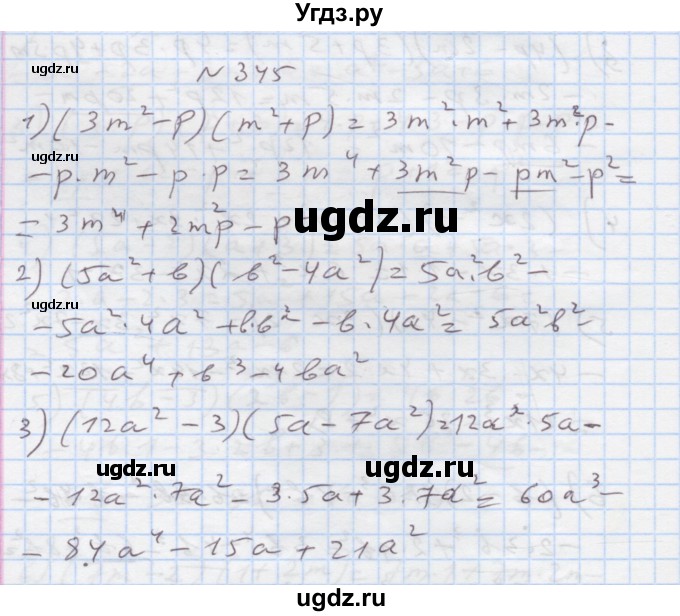 Угдз.ру
ugdz.ru
№ 345
1) (3m² - p)(m² + p) = 3m²·m² + 3m²·p -
- p·m² - p·p = 3m⁴ + 3m²p - pm² - p² =
ugdz.ru
= 3m⁴ + 2m²p - p²
ugdz.ru
2) (5a² + в)(в² - 4a²) = 5a²·в² -
ugdz.ru
- 5a²·4a² + в·в² - в·4a² = 5a²в² -
- 20a⁴ + в³ - 4вa²
3) (12a² - 3)(5a - 7a²) = 12a²·5a -
ugdz.ru
ugdz.ru
- 12a²·7a² - 3·5a + 3·7a² = 60a³ -
- 84a⁴ - 15a + 21a²
ugdz.ru
ugdz.ru
Угдз.ру